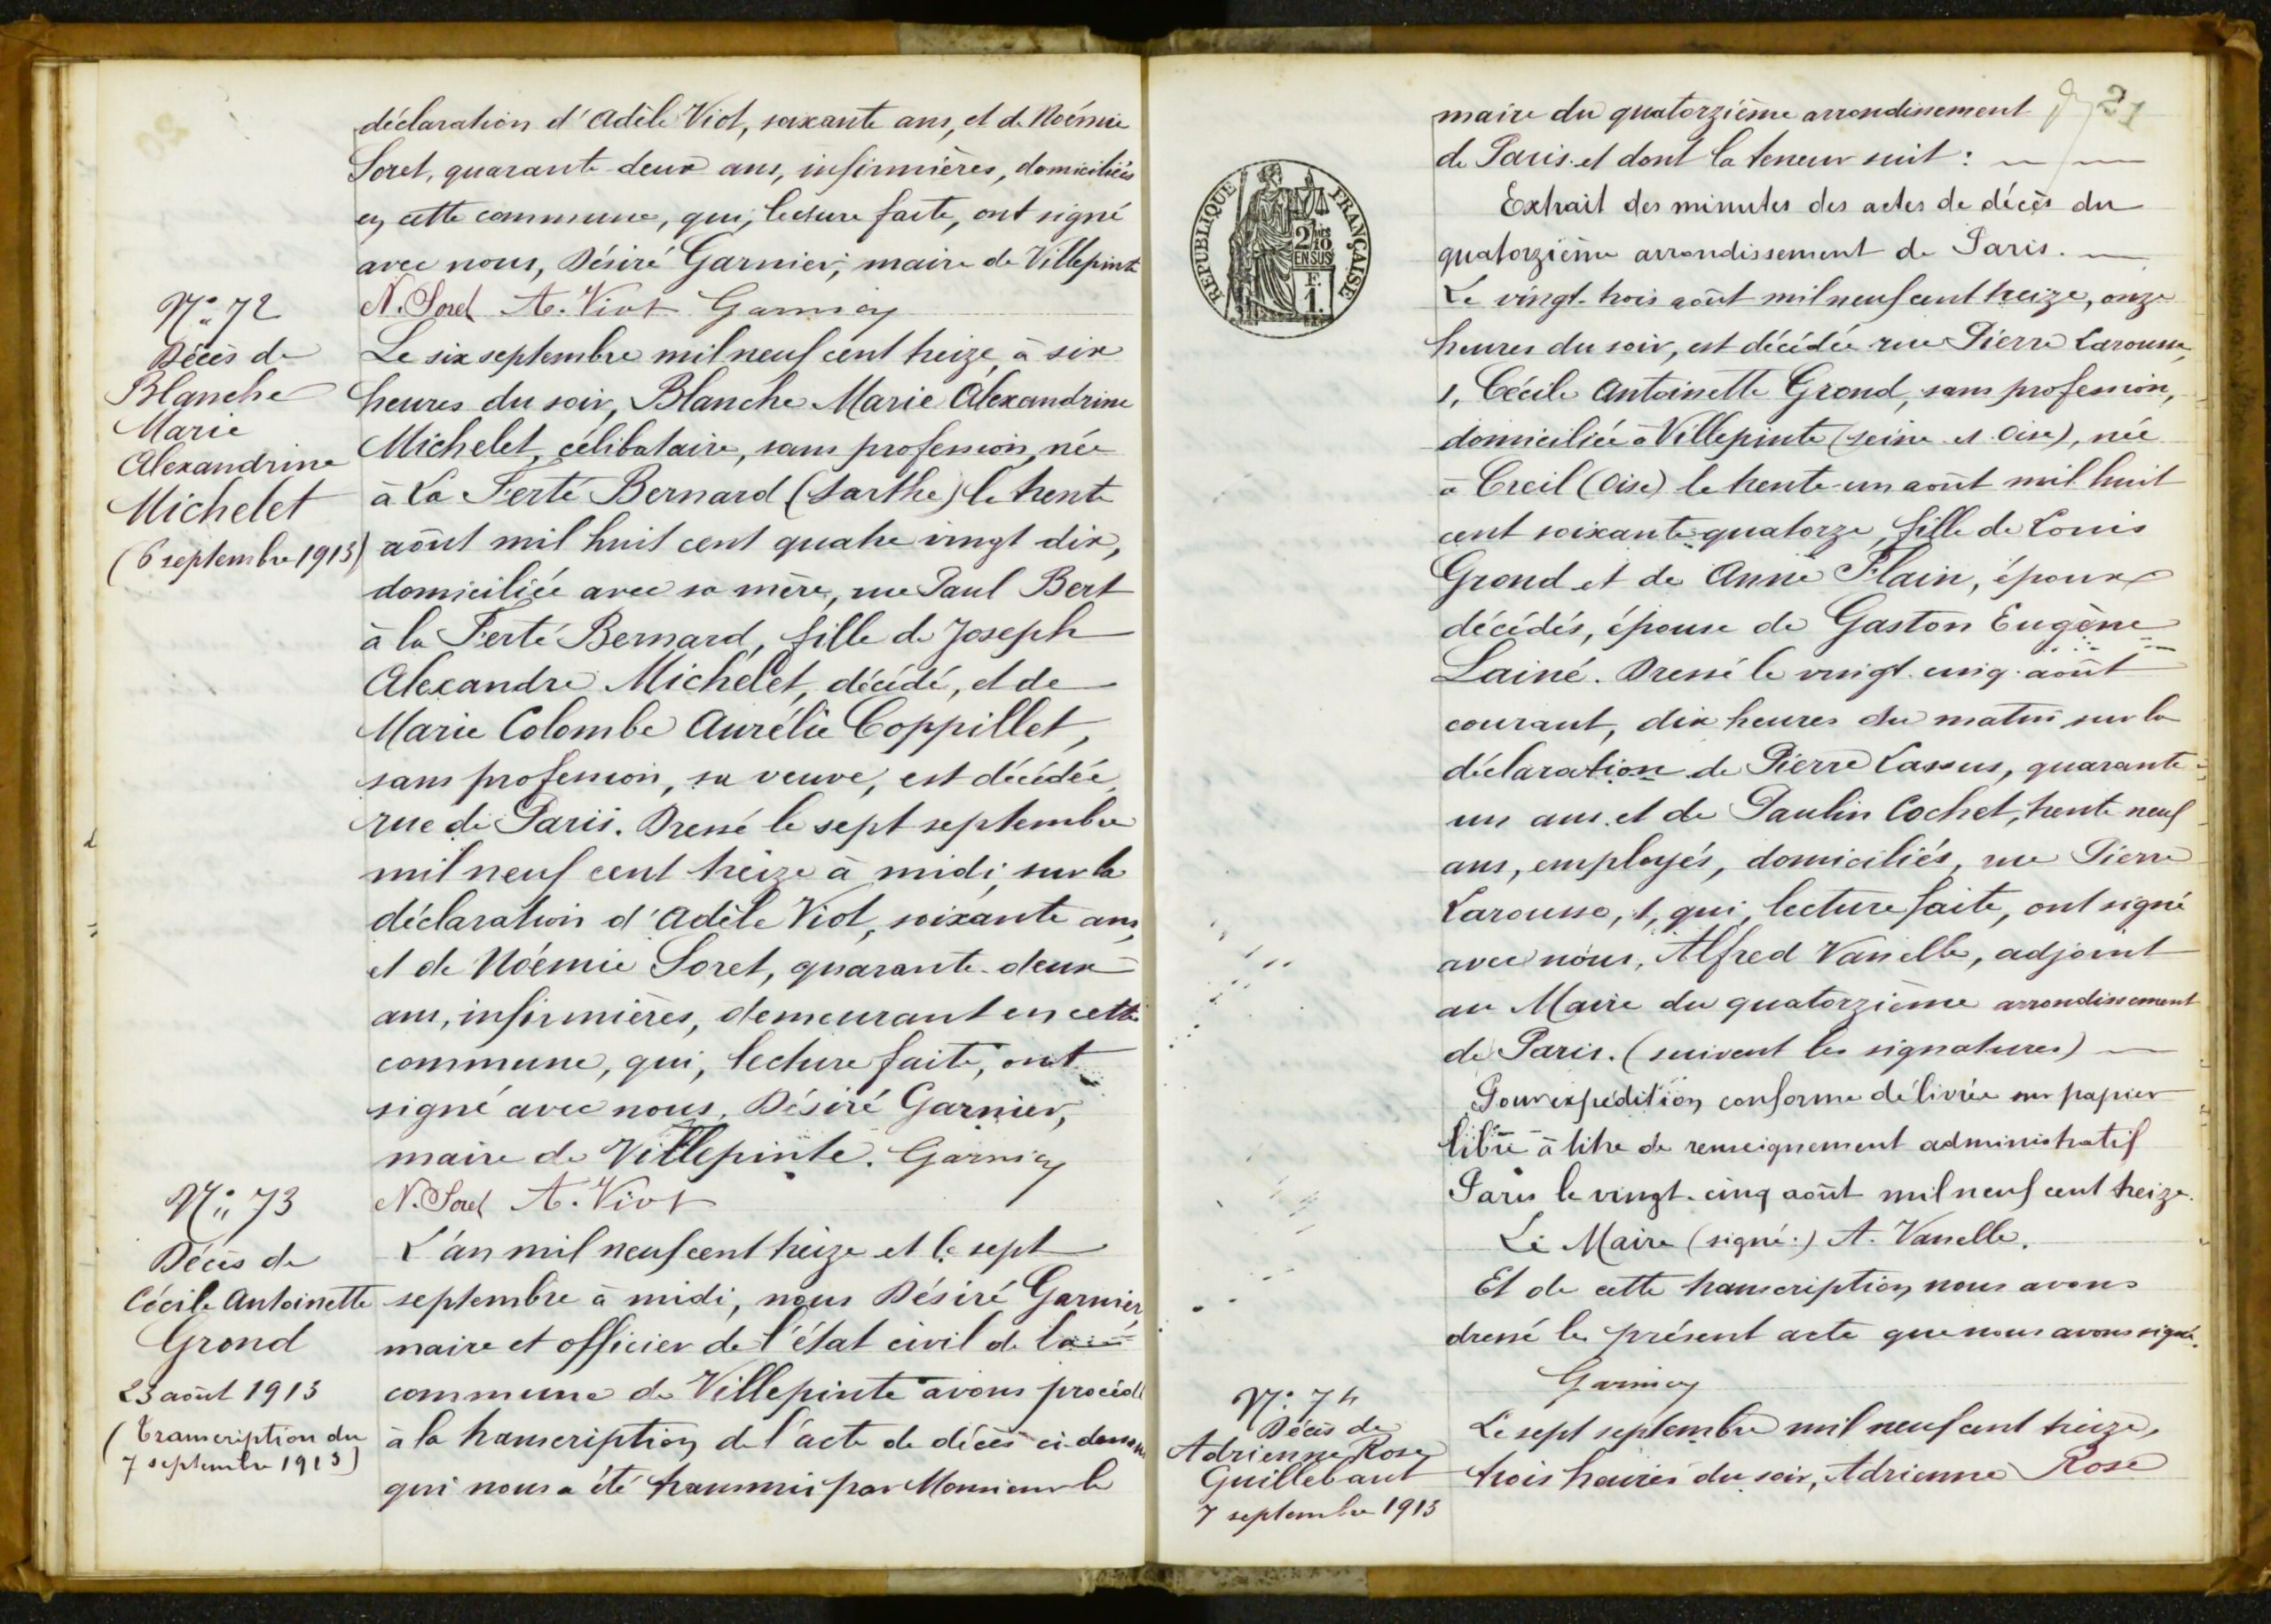 déclaration d'Adèle Viot, soixante ans, et de Noémie
Soret, quarante deux ans, infirmières, domiciliées
en cette commune, qui, lecture faite, ont signé
avec nous, Désiré Garnier, maire de Villepinte
N. Soret A. Viot Garnier
N° 72
Décès de
Blanche
Marie
Alexandrine
Michelet
(6 septembre 1913)
Le six septembre mil neuf cent treize, à six
heures du soir, Blanche Marie Alexandrine
Michelet, célibataire, sans profession, née
à La Ferté Bernard (Sarthe) le trente
août mil huit cent quatre vingt dix,
domiciliée avec sa mère, rue Paul Bert
à la Ferté Bernard, fille de Joseph
Alexandre Michelet, décédé, et de
Marie Colombe Aurélie Coppillet,
sans profession, sa veuve, est décédée,
rue de Paris. Dressé le sept septembre
mil neuf cent treize à midi, sur la
déclaration d'Adèle Viot, soixante ans,
et de Noémie Soret, quarante-deux
ans, infirmières, demeurant en cette
commune, qui, lecture faite, ont
signé avec nous, Désiré Garnier,
maire de Villepinte. Garnier
N. Soret A. Viot
N° 73
Décès de
Cécile Antoinette
Grond
23 août 1913
(Transcription du
7 septembre 1913)
L'an mil neuf cent treize et le sept
septembre à midi, nous Désiré Garnier,
maire et officier de l'état civil de la
commune de Villepinte avons procédé
à la transcription de l'acte de décès ci-dessous
qui nous a été transmis par Monsieur le
21
maire du quatorzième arrondissement
de Paris et dont la teneur suit :
REPUBLIQUE FRANÇAISE
2/10 EN SUS
F. 1.
Extrait des minutes des actes de décès du
quatorzième arrondissement de Paris.
Le vingt-trois août mil neuf cent treize, onze
heures du soir, est décédée rue Pierre Larousse,
1, Cécile Antoinette Grond, sans profession,
domiciliée à Villepinte (Seine et Oise), née
à Creil (Oise) le trente-un août mil huit
cent soixante-quatorze, fille de Louis
Grond et de Anne Flain, époux
décédés, épouse de Gaston Eugène
Lainé. Dressé le vingt-cinq août
courant, dix heures du matin sur la
déclaration de Pierre Lassus, quarante-
un ans et de Paulin Cochet, trente neuf
ans, employés, domiciliés, rue Pierre
Larousse, 1, qui, lecture faite, ont signé
avec nous, Alfred Vanelle, adjoint
au Maire du quatorzième arrondissement
de Paris. (suivent les signatures)
Pour expédition conforme délivrée sur papier
libre à titre de renseignement administratif
Paris le vingt-cinq août mil neuf cent treize.
Le Maire (signé:) A. Vanelle.
Et de cette transcription nous avons
dressé le présent acte que nous avons signé.
Garnier
N° 74
Décès de
Adrienne Rose
Guillebaut
7 septembre 1913
Le sept septembre mil neuf cent treize,
trois heures du soir, Adrienne Rose